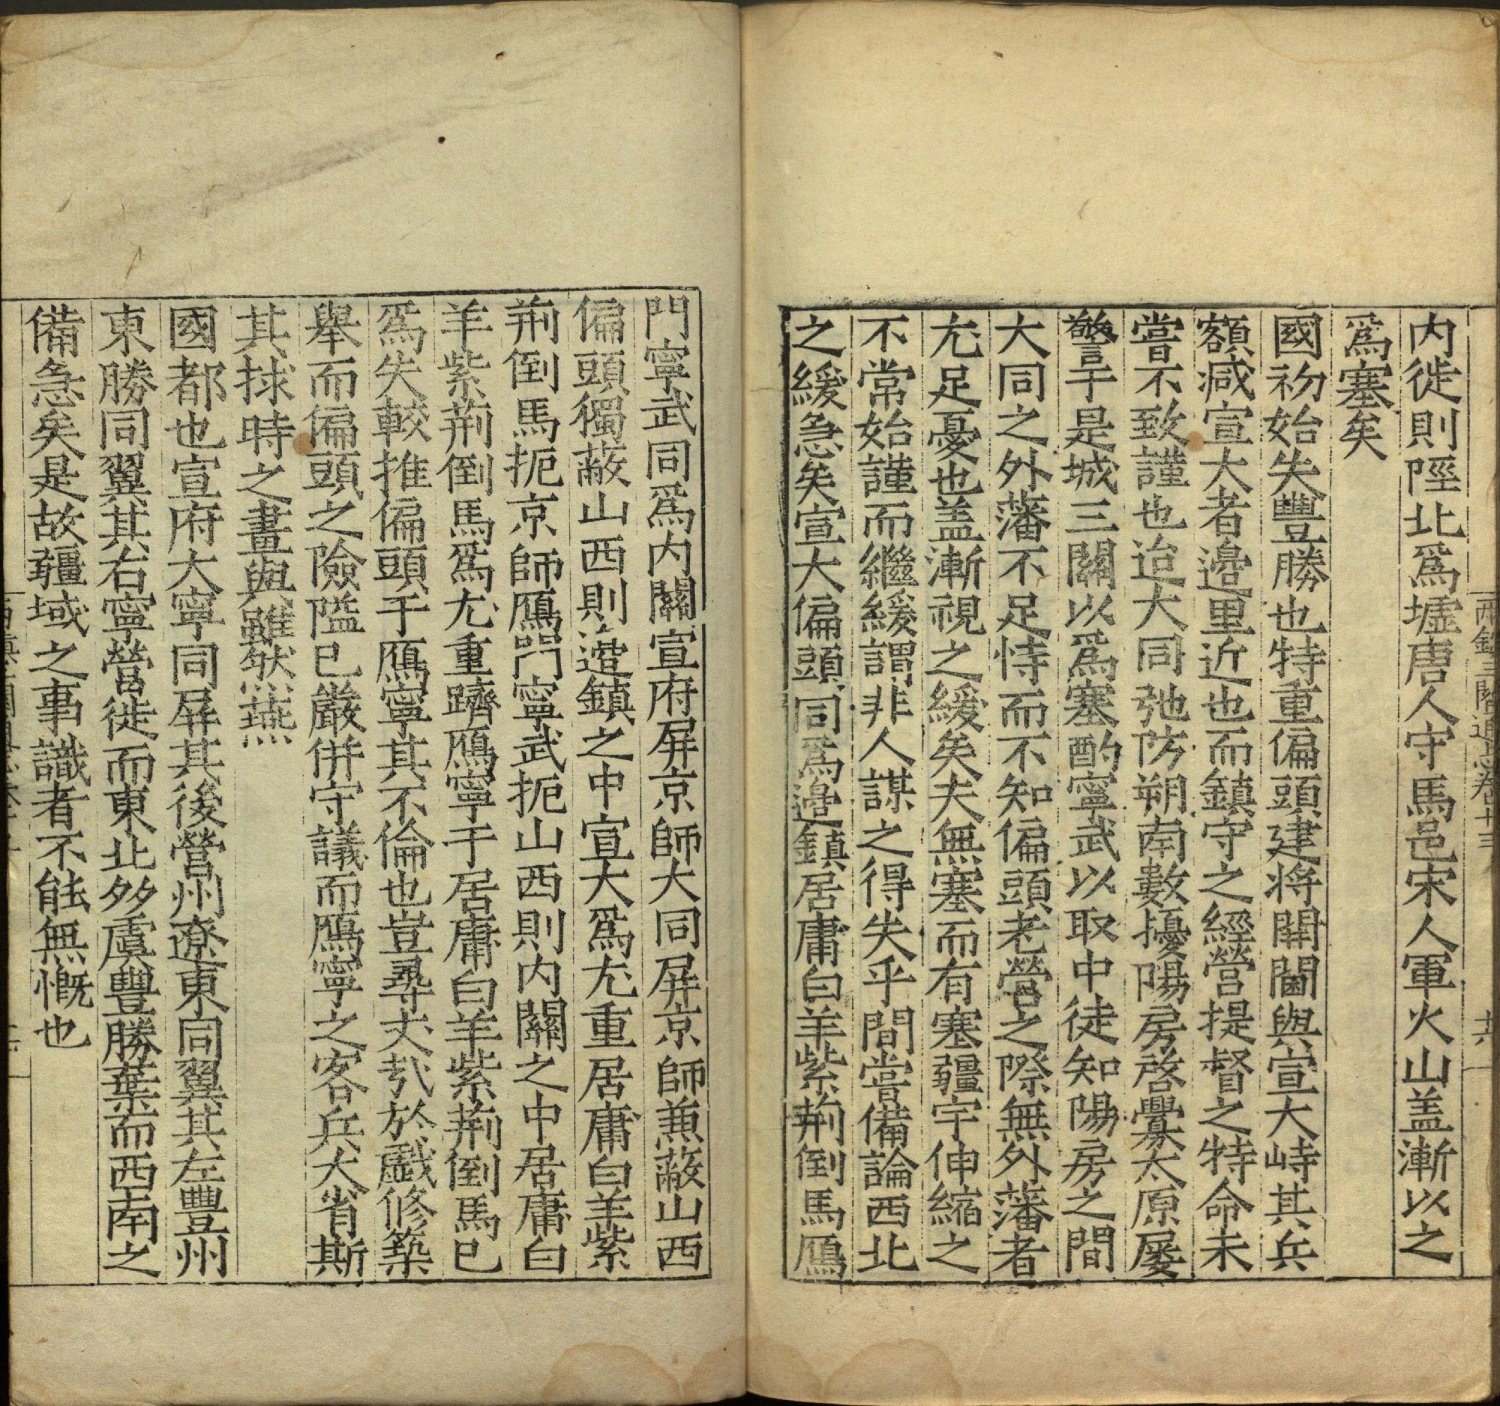 内徙則陘北爲墟唐人守馬邑宋人軍火山盖漸以之
爲塞矣
國初始失豐勝也特重偏頭建将開閫與宣大峙其兵
額減宣大者邊里近也而鎮守之經營提督之特命未
嘗不致謹也迨大同弛防朔南數擾陽房啓釁太原屡
警于是城三關以爲塞酌寧武以取中徒知陽房之間
大同之外藩不足恃而不知偏頭老營之際無外藩者
尤足憂也盖漸視之緩矣夫無塞而有塞疆宇伸縮之
不常始謹而繼緩謂非人謀之得失乎間嘗備論西北
之緩急矣宣大偏頭同爲邊鎮居庸白羊紫荆倒馬鴈
門寧武同爲内關宣府屏京師大同屏京師兼蔽山西
偏頭獨蔽山西則邊鎮之中宣大爲尤重居庸白羊紫
荆倒馬扼京師鴈門寧武扼山西則内關之中居庸白
羊紫荆倒馬爲尤重躋鴈寧于居庸白羊紫荆倒馬已
爲失較推偏頭于鴈寧其不倫也豈尋丈㢤於戲修築
舉而偏頭之險隘已嚴併守議而鴈寧之客兵大省斯
其捄時之畫與雖然燕
國都也宣府大寧同屏其後營州遼東同翼其左豐州
東勝同翼其右寧營徙而東北多虞豐勝棄而西南之
備急矣是故疆域之事識者不能無慨也
兩鎮三關通志卷十三